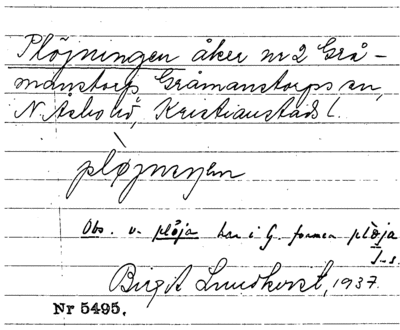 Plöjningen åker nr 2 Grå-
manstorp Gråmanstorps sn,
N. Åsbo hd, Kristianstads l.
plöjneŋen
Obs. v. plöja har i G. formen plöja
I-s.
Birgit Lundkvist, 1937.
Nr 5495.